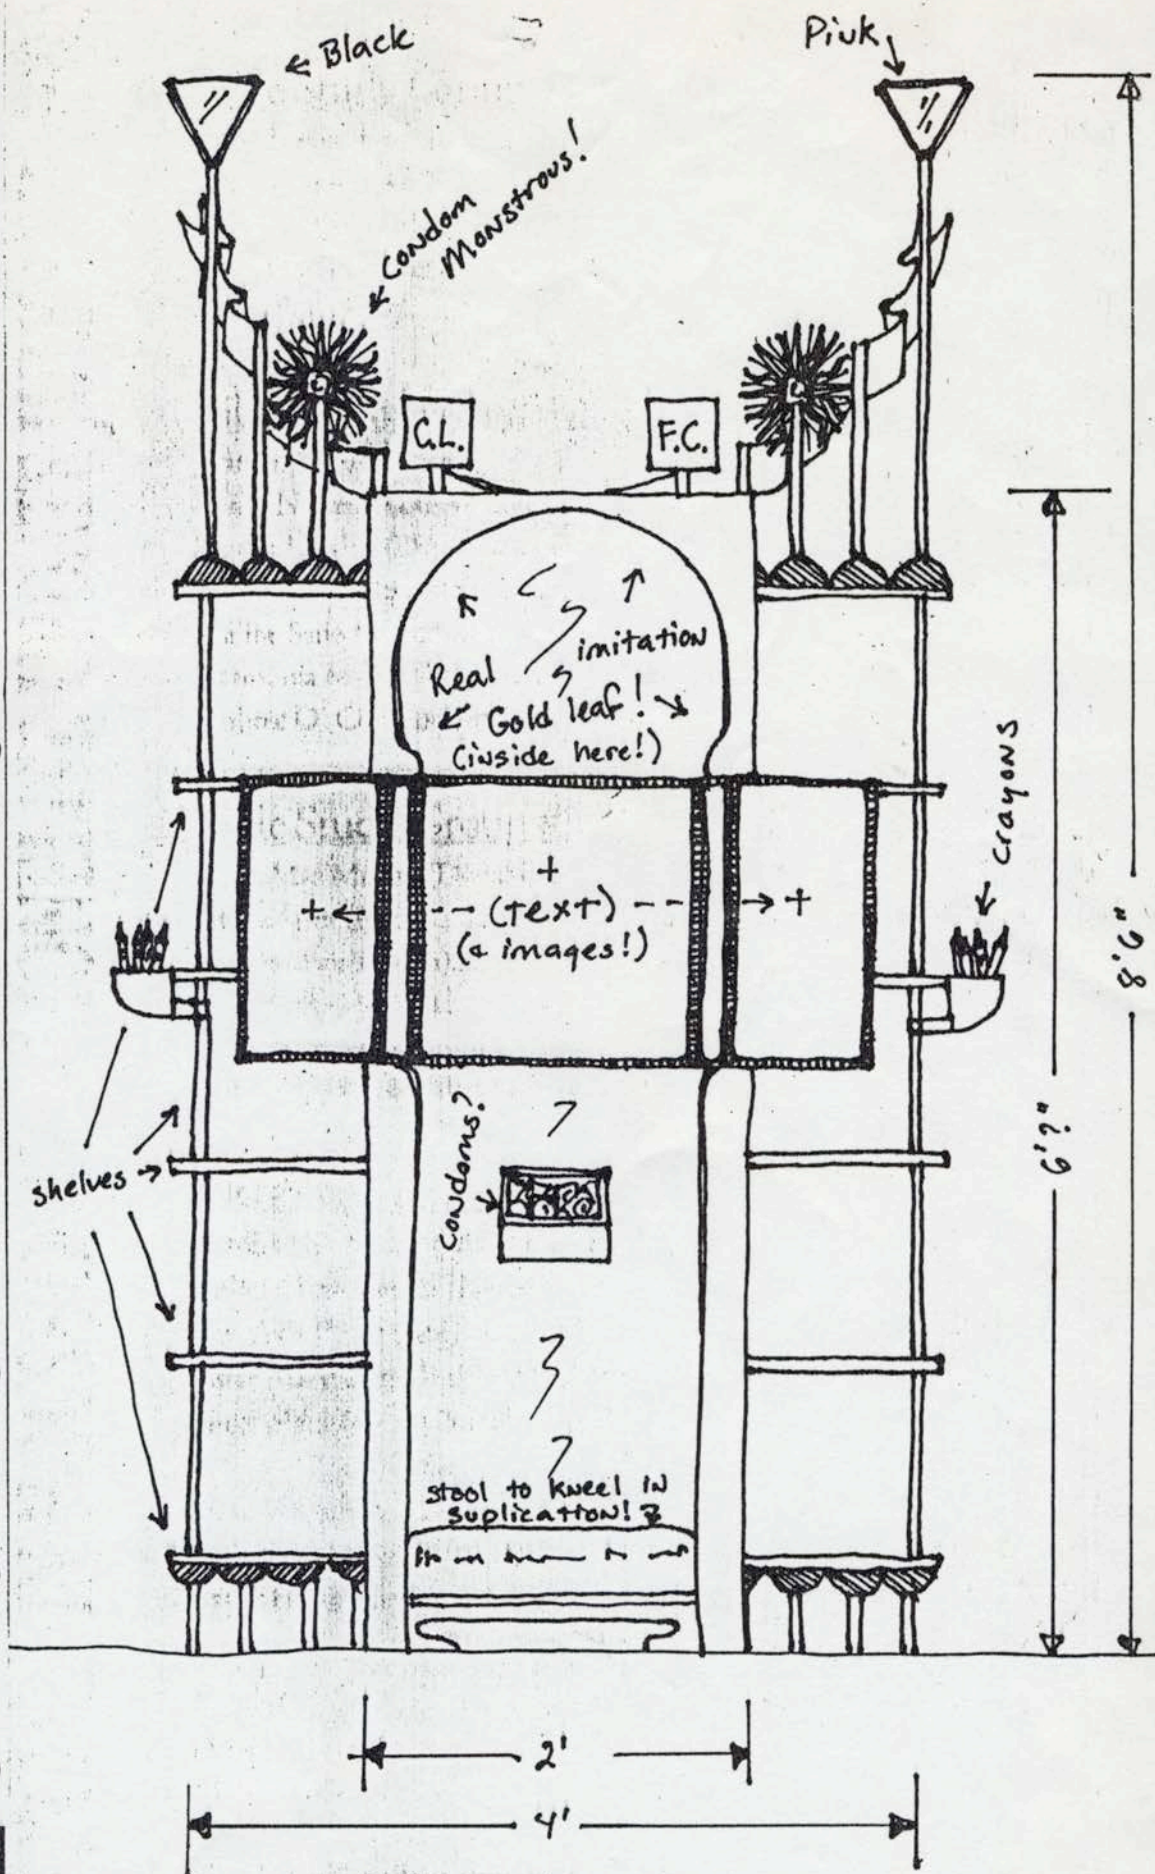 ← Black
Pink
condom
Monstrous!
C.L.
F.C.
Real
imitation
Gold leaf!
(inside here!)
Crayons
+
+ ← -- (text) -- → +
(& images!)
8'6"
6'?"
shelves →
condoms?
stool to kneel in
suplication!
2'
4'